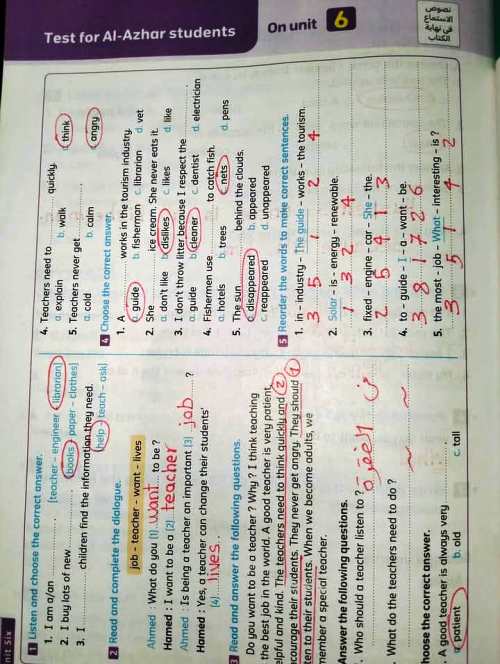 Test for Al-Azhar students
On unit 6
نصوص
الاستماع
فى نهاية
الكتاب
1 Listen and choose the correct answer.
1. I am a/an .......... [teacher - engineer - librarian]
2. I buy lots of new .......... (books - paper - clothes)
3. I .......... children find the information they need.
(help - teach - ask)
2 Read and complete the dialogue.
job - teacher - want - lives
Ahmed : What do you (1) want to be ?
Hamed : I want to be a (2) teacher
Ahmed : Is being a teacher an important (3) job ?
Hamed : Yes, a teacher can change their students'
(4) lives
3 Read and answer the following questions.
Do you want to be a teacher ? Why ? I think teaching
the best job in the world. A good teacher is very patient,
elpful and kind. The teachers need to think quickly and 2
courage their students. They never get angry. They should 1
ten to their students. When we become adults, we
member a special teacher.
Answer the following questions.
. Who should a teacher listen to ?
What do the teachers need to do ?
hoose the correct answer.
. A good teacher is always very ..........
a. patient b. old c. tall
4. Teachers need to .......... quickly.
a. explain b. walk c. think
5. Teachers never get ..........
a. cold b. calm c. angry
4 Choose the correct answer.
1. A .......... works in the tourism industry.
a. guide b. fisherman c. librarian d. vet
2. She .......... ice cream. She never eats it.
a. don't like b. dislikes c. likes d. like
3. I don't throw litter because I respect the ..........
a. guide b. cleaner c. dentist d. electrician
4. Fishermen use .......... to catch fish.
a. hotels b. trees c. nets d. pens
5. The sun .......... behind the clouds.
a. disappeared b. appeared
c. reappeared d. unappeared
5 Reorder the words to make correct sentences.
1. in - industry - The guide - works - the tourism.
3 5 1 2 4
2. Solar - is - energy - renewable.
1 3 2 4
3. fixed - engine - car - She - the.
2 5 4 1 3
4. to - guide - I - a - want - be.
3 8 1 7 2 6
5. the most - job - What - interesting - is ?
3 5 1 4 2